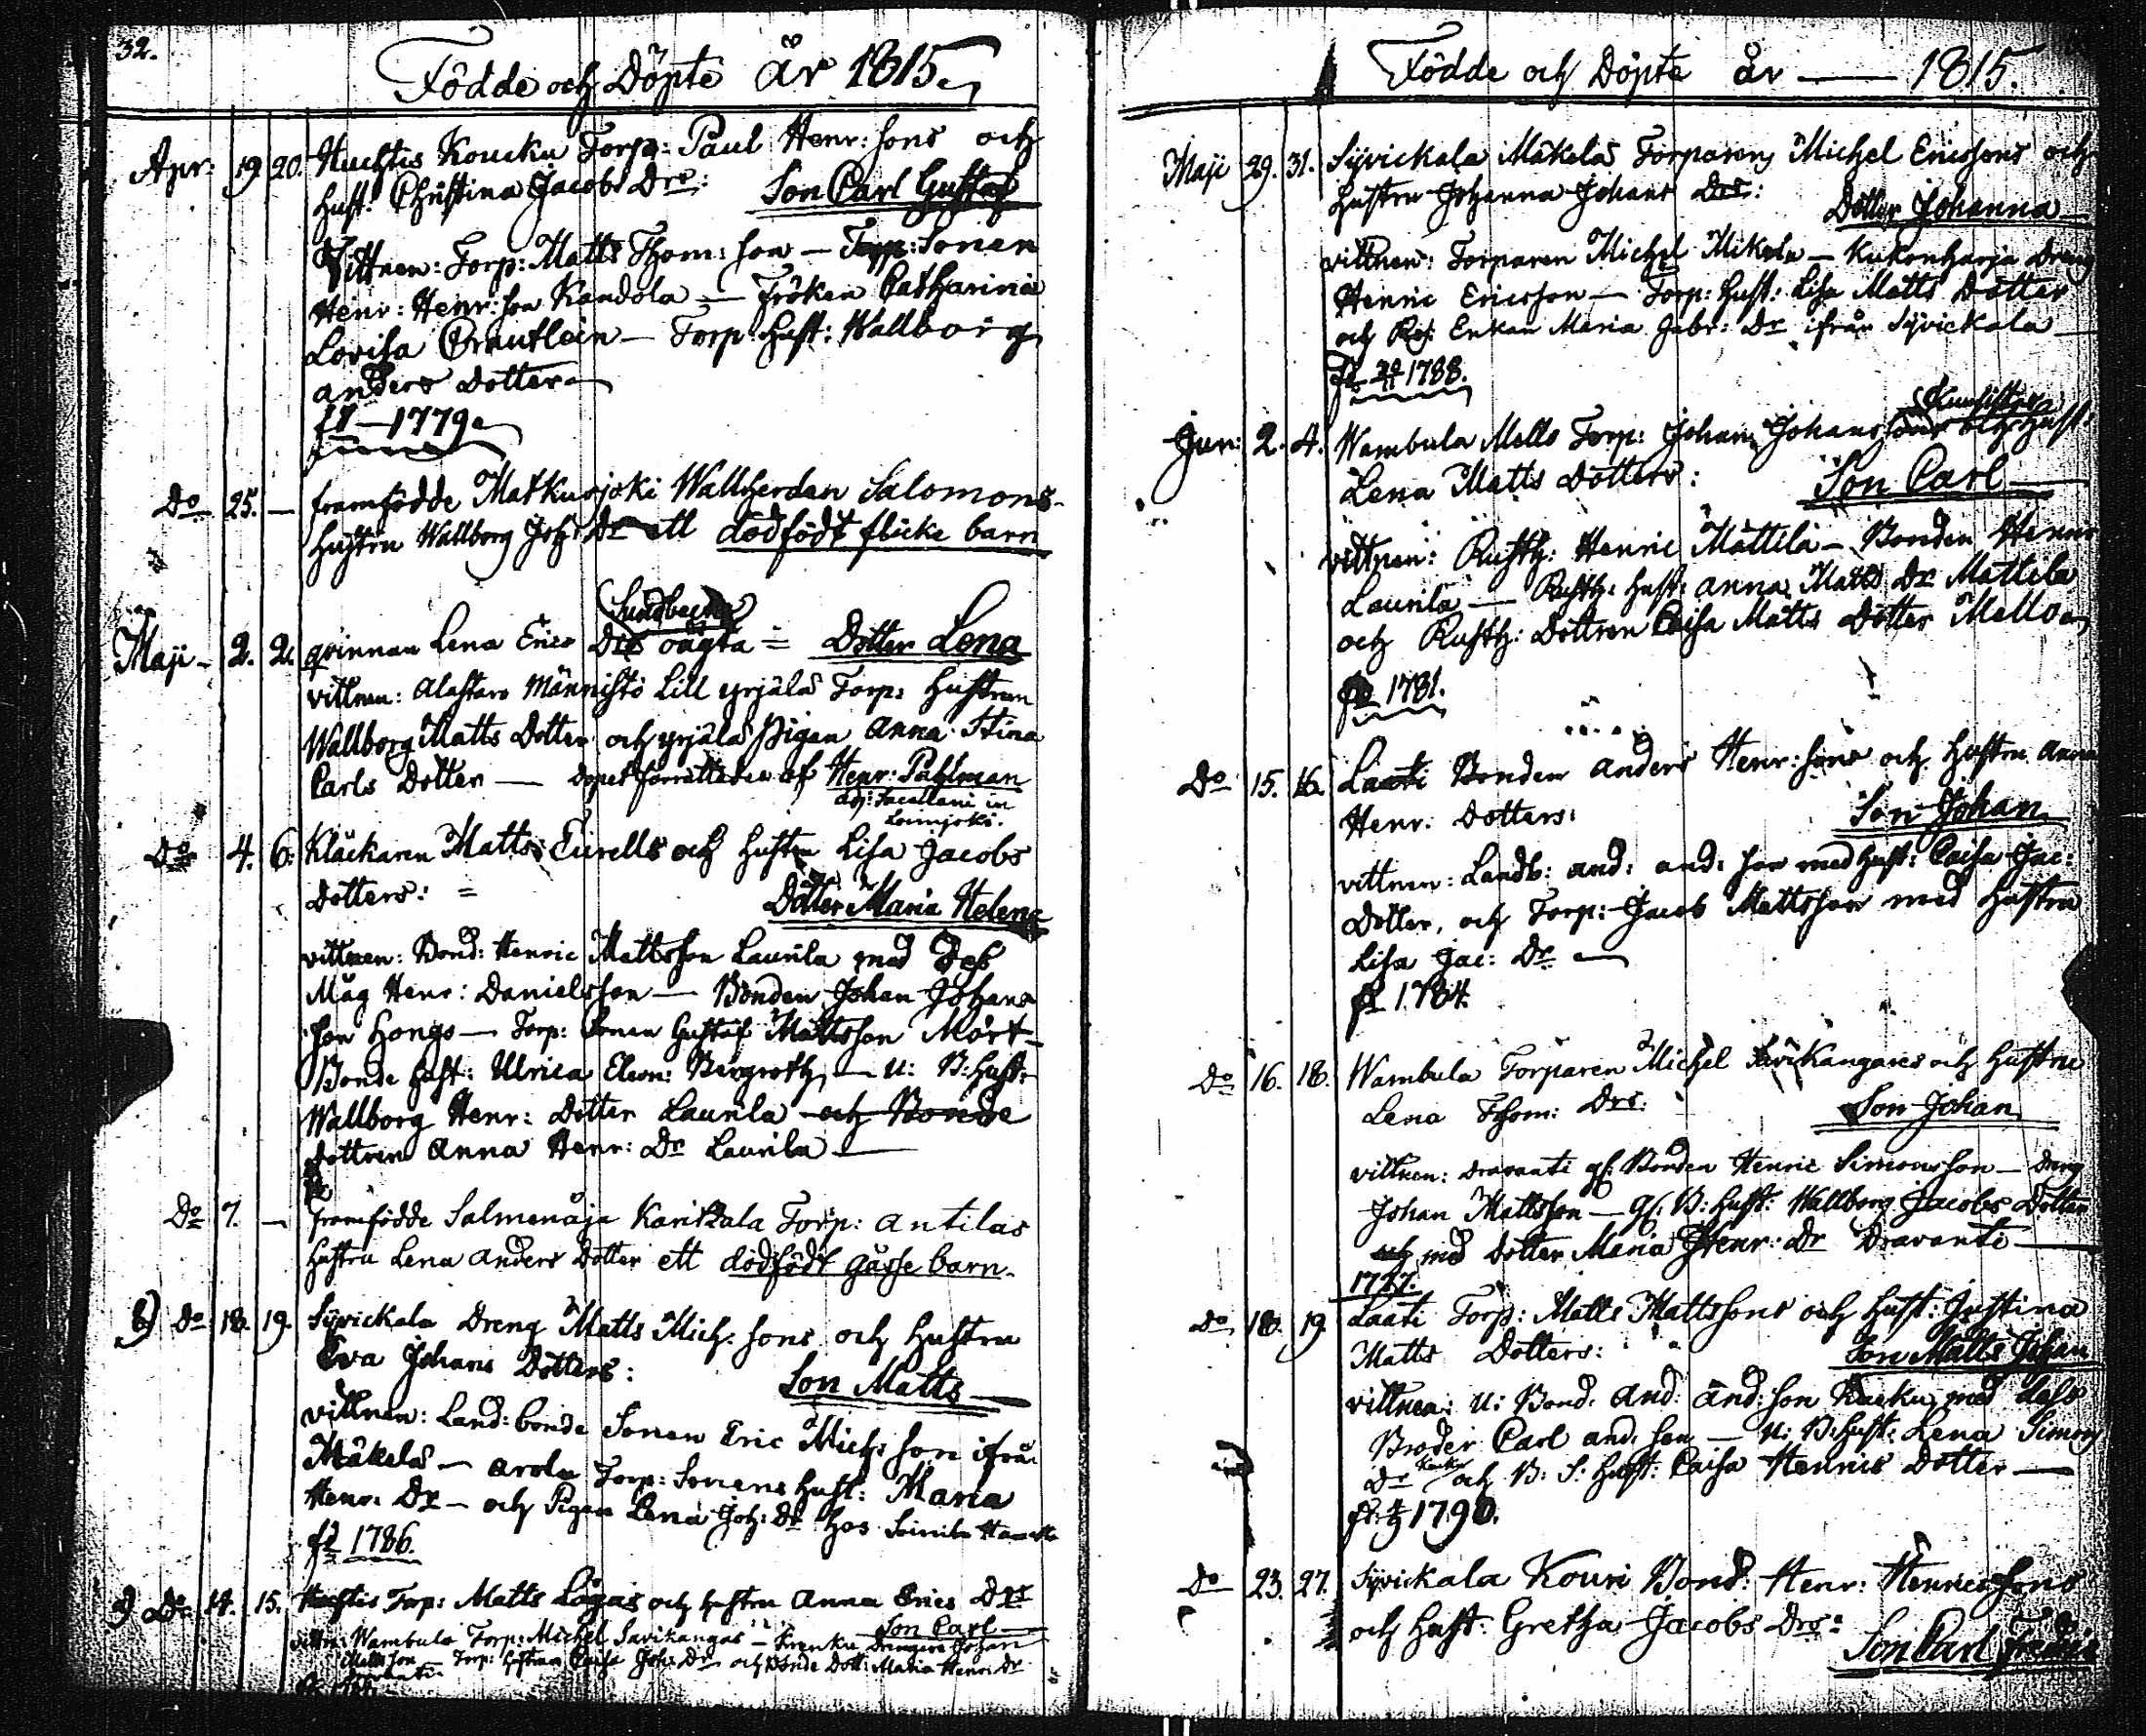 32.
Födde och Döpte år 1815.
Apr: 19 20. Huchtis Koucku Torp: Paul Henr: sons och
Hust: Christina Jacobs Drs: Son Carl Gustaf
Vittnen: Torp: Matts Thom: son — Torp: Sonen
Henr: Henr: son Kandola — Fröken Catharina
Lovisa — Torp: Hust: Wallborg
anders Dotter
1779.
Do 25. — framfödde Matkusjoki Wallherdan Salomons
Hustru Wallborg Joh: Dr ett dödfödt flicke barn
Maji — 2. 2. qvinnan Lena Erics Drs oägta = Dotter Lena
vittnen: Alastaro Männistö Lill yrjälä Torp: Hustrun
Wallborg Matts Dotter och yrjälä Pigan Anna Stina
Carls Dotter — Dopet förrättades af Henr: Pahlman
adj: Sacellani in
Loimjoki.
Do 4. 6. Kläckaren Matts Eurells och Hustru Lisa Jacobs
Dotters: = Dotter Maria Helena
vittnen: Bond: Henric Mattsson Laurila med Dess
Måg Henr: Danielsson — Bonden Johan Johans
son Hongo — Torp: Sonen Gustaf Mattsson Mört —
Bonde Hust: Ulrica Eleon: Bergroth — U: B: Hust:
Wallborg Henr: Dotter Laurila och Bonde
Dottren Anna Henr: Dr Laurila —
Do 7. — framfödde Salmenoja Karikkala Torp: Antilas
Hustru Lena Anders Dotter ett dödfödt gåsse barn.
8) Do 18. 19. Syvickala Dreng Matts Mich: sons och Hustru
Eva Johans Dotters: Son Matts
vittnen: Land: bonde Sonen Eric Mich: son ifrån
Mäkelä — Arola Torp: Sonens Hust: Maria
Henr: Dr — och Pigan Lena Joh: Dr hos
1786.
Do 14. 15. Huchtis Torp: Matts Lågas och Hustru Anna Erics Drs
Son Carl
vittn: Wambula Torp: Michel Savikangas — Krenku Drengen Johan
Mattsson — Torp: Hustrun Caisa Joh: Dr och Bonde Dott: Maria Henr: Dr
Dravanti
Födde och Döpte år — 1815.
Maji 29. 31. Syvickala Mäkelä Torparen Michel Ericssons och
Hustru Johanna Johans Drs: Dotter Johanna
vittnen: Torparen Michel Mikola — Kukonharja Dreng
Henric Ericsson — Torp: Hust: Lisa Matts Dotter
och Enkan Maria Gabr: Dr ifrån Syvickala —
1788.
Jun: 2. 4. Wambula Mello Torp: Johan Johanssons och Hust:
Lena Matts Dotters: Son Carl
vittnen: Rusth: Henric Mattila — Bonden Henr:
Laurila — Rusth: Hust: Anna Matts Dr Mattila
och Rusth: Dottren Caisa Matts Dotter Mello
1781.
Do 15. 16. Laati Bonden Anders Henr: sons och Hustru Anna
Henr: Dotters: Son Johan
vittnen: Landb: And: And: son med Hust: Caisa Jac:
Dotter, och Torp: Jacob Mattsson med Hustru
Lisa Jac: Dr —
1784.
Do 16. 18. Wambula Torparen Michel Savikangares och Hustru
Lena Thom: Drs: Son Johan
vittnen: Dravanti gl: Bonden Henric Simonsson — Dreng
Johan Mattsson — gl: B: Hust: Wallborg Jacobs Dotter
och med Dotter Maria Henr: Dr Dravanti —
1777.
Do 18. 19. Laati Torp: Matts Mattssons och Hust: Justina
Matts Dotters: Son Matts Johan
vittnen: U: Bond: And: And: son med dess
Broder Carl And: son — U: B: Hust: Lena Simons
Dr och B: S: Hust: Caisa Henrics Dotter —
1790.
Do 23. 27. Syvickala Kouri Bond: Henr: Henricssons
och Hust: Gretha Jacobs Drs: Son Carl Fredric